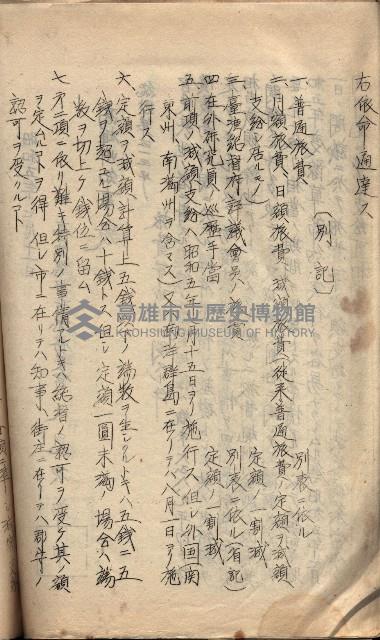 右依命通達ス
（別記）
一、普通旅費 別表ニ依ル
二、月額旅費、日額旅費、減額旅費（従来普通旅費ノ定額ヲ減額
支給シ居ルモノ） 定額ノ一割減
三、臺灣総督府評議會員ノ旅費 別表ニ依ル（省記）
四、在外研究員ノ巡歴手當 定額ノ一割減
五、前項ノ減額支給ハ昭和五年 月十五日ヨリ施行ス 但シ外国（関
東州、南満州ヲ含マス）又ハ南洋群島ニ在リテハ八月一日ヨリ施
行ス
六、定額ヲ減額計算上五銭未満ノ端数ヲ生シタルトキハ五銭ニ五
銭ヲ超ユル場合ハ十銭トス 但シ定額一圓未満ノ場合ハ端
数ヲ切上ケ銭位ニ留ム
七、第二項ニ依リ難キ特別ノ事情アルトキハ総督ノ認可ヲ受ケ其ノ額
ヲ定ムルコトヲ得 但シ市ニ在リテハ知事、街庄ニ在リテハ郡守ノ
認可ヲ受クルコト
高雄市立歷史博物館
KAOHSIUNG MUSEUM OF HISTORY